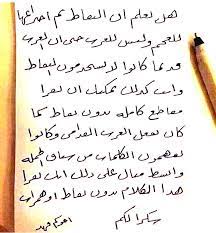 هل تعلم ان النقاط تم اختراعها
للعجم وليس للعرب حتى ان العرب
قديما كانوا لا يستخدمون النقاط
وانت كذلك يمكنك ان تقرا
مقاطع كامله بدون نقاط كما
كان يفعل العرب القدامى وكانوا
يفهمون الكلمات من سياق الجمله
وابسط مثال على ذلك انك تقرا
هذا الكلام بدون نقاط او همزات
شكرا لكم